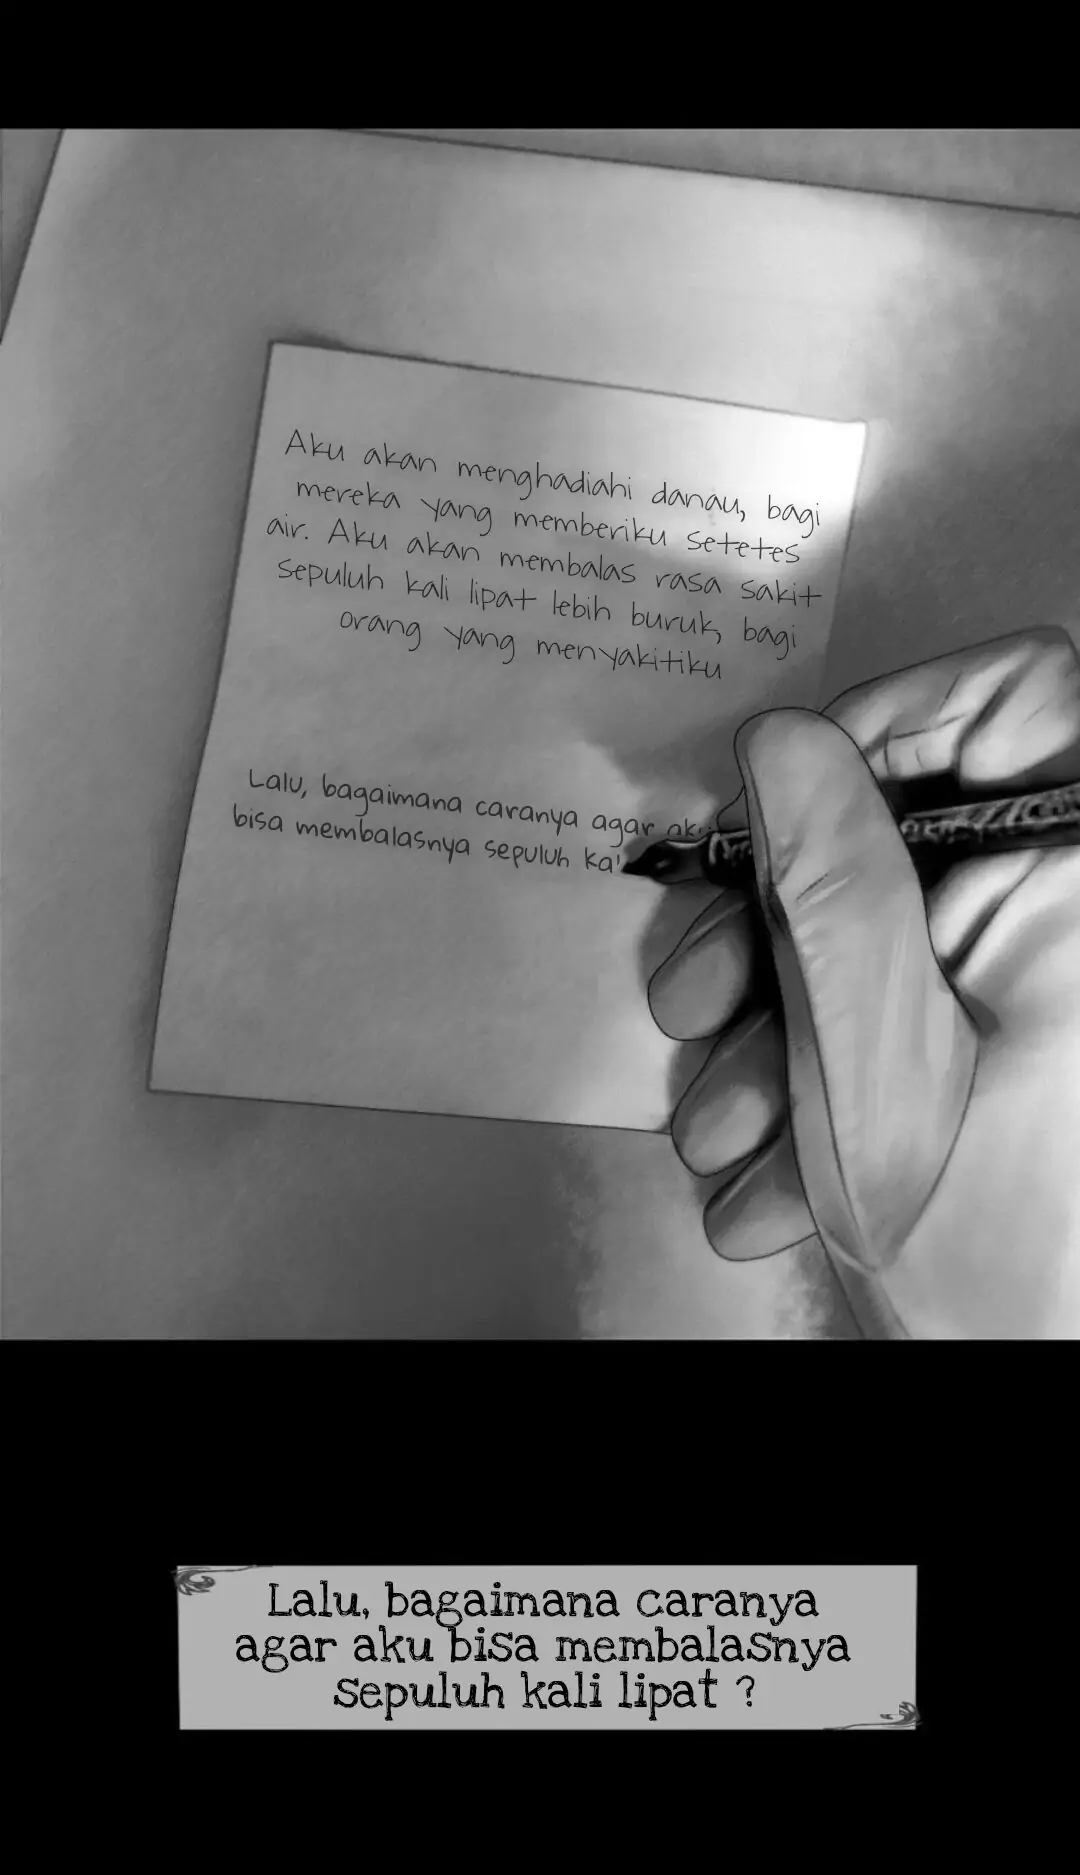 Aku akan menghadiahi danau, bagi
mereka yang memberiku setetes
air. Aku akan membalas rasa sakit
sepuluh kali lipat lebih buruk, bagi
orang yang menyakitiku
Lalu, bagaimana caranya agar aku
bisa membalasnya sepuluh ka
Lalu, bagaimana caranya
agar aku bisa membalasnya
sepuluh kali lipat ?